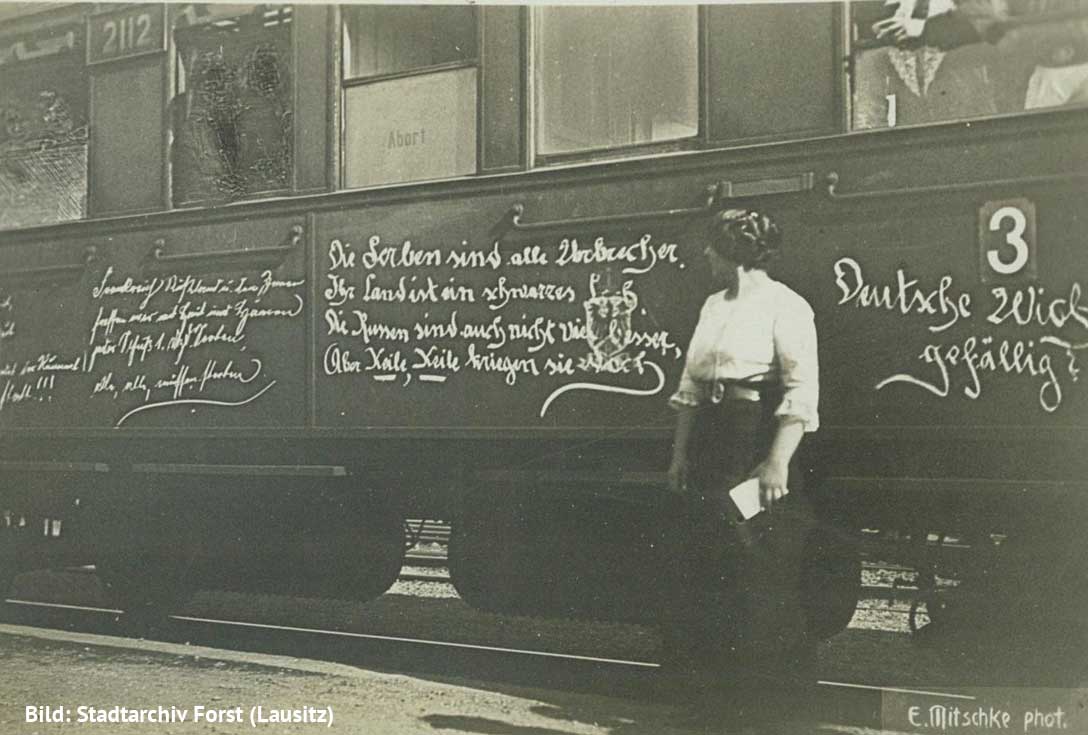 2112
Abort
1
3
Frankreich Rußland u. den
fressen wir mit Haut und
jeder Schuß 1.
Alle, alle, müssen sterben
Die Serben sind alle Vrbrecher.
Ihr Land ist ein schwarzes
Die Russen sind auch nicht viel besser,
(Aber Keile, Keile kriegen sie doch
Deutsche Wich
gefällig?
Bild: Stadtarchiv Forst (Lausitz)
E. Mitschke phot.